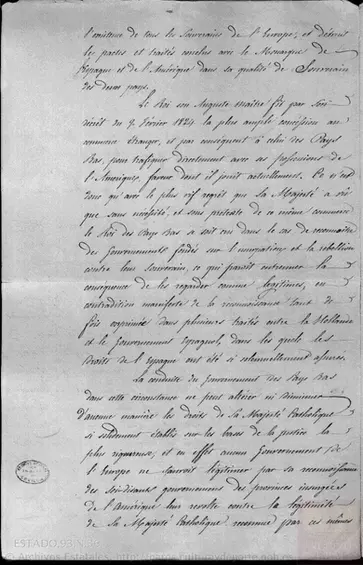 l'existence de tous les Souverains de l'Europe, et détruit
les pactes et traités conclus avec le Monarque de
l'Espagne et de l'Amérique dans sa qualité de Souverain
des deux pays.
Le Roi son Auguste maître fit par son
décrêt du 9. Février 1824 la plus ample concession au
commerce étranger, et par conséquent à celui des Pays
Bas, pour trafiquer directement avec ses possessions de
l'Amérique, faveur dont il jouit actuellement. Ce n'est
donc qu'avec le plus vif regrèt que Sa Majesté a vû
que sans nécessité, et sous prétexte de ce même commerce
le Roi des Pays Bas a soit en dans le cas de reconnaître
des Gouvernements fondés sur l'usurpation et la rebellion
contre leur Souverain, ce qui paroît entrainer la
conséquence de les regarder comme légitimes, en
contradiction manifeste de la reconnoissance tant de
fois exprimée dans plusieurs traités entre la Hollande
et le Gouvernement Espagnol, dans les quels les
Droits de l'Espagne ont été si solennellement assurés.
La conduite du Gouvernement des Pays Bas
dans cette circonstance ne peut altérer ni diminuer
d'aucune manière les droits de Sa Majesté Catholique
si solidement établis sur les bases de la justice la
plus rigoureuse; et en effet aucun Gouvernement de
l'Europe ne sauroit légitimer par sa reconnoissance
des soi-disants gouvernements des provinces insurgées
de l'Amérique leur révolte contre la légitimité
de Sa Majesté Catholique reconnue par ces mêmes
ESTADO,98,N.39